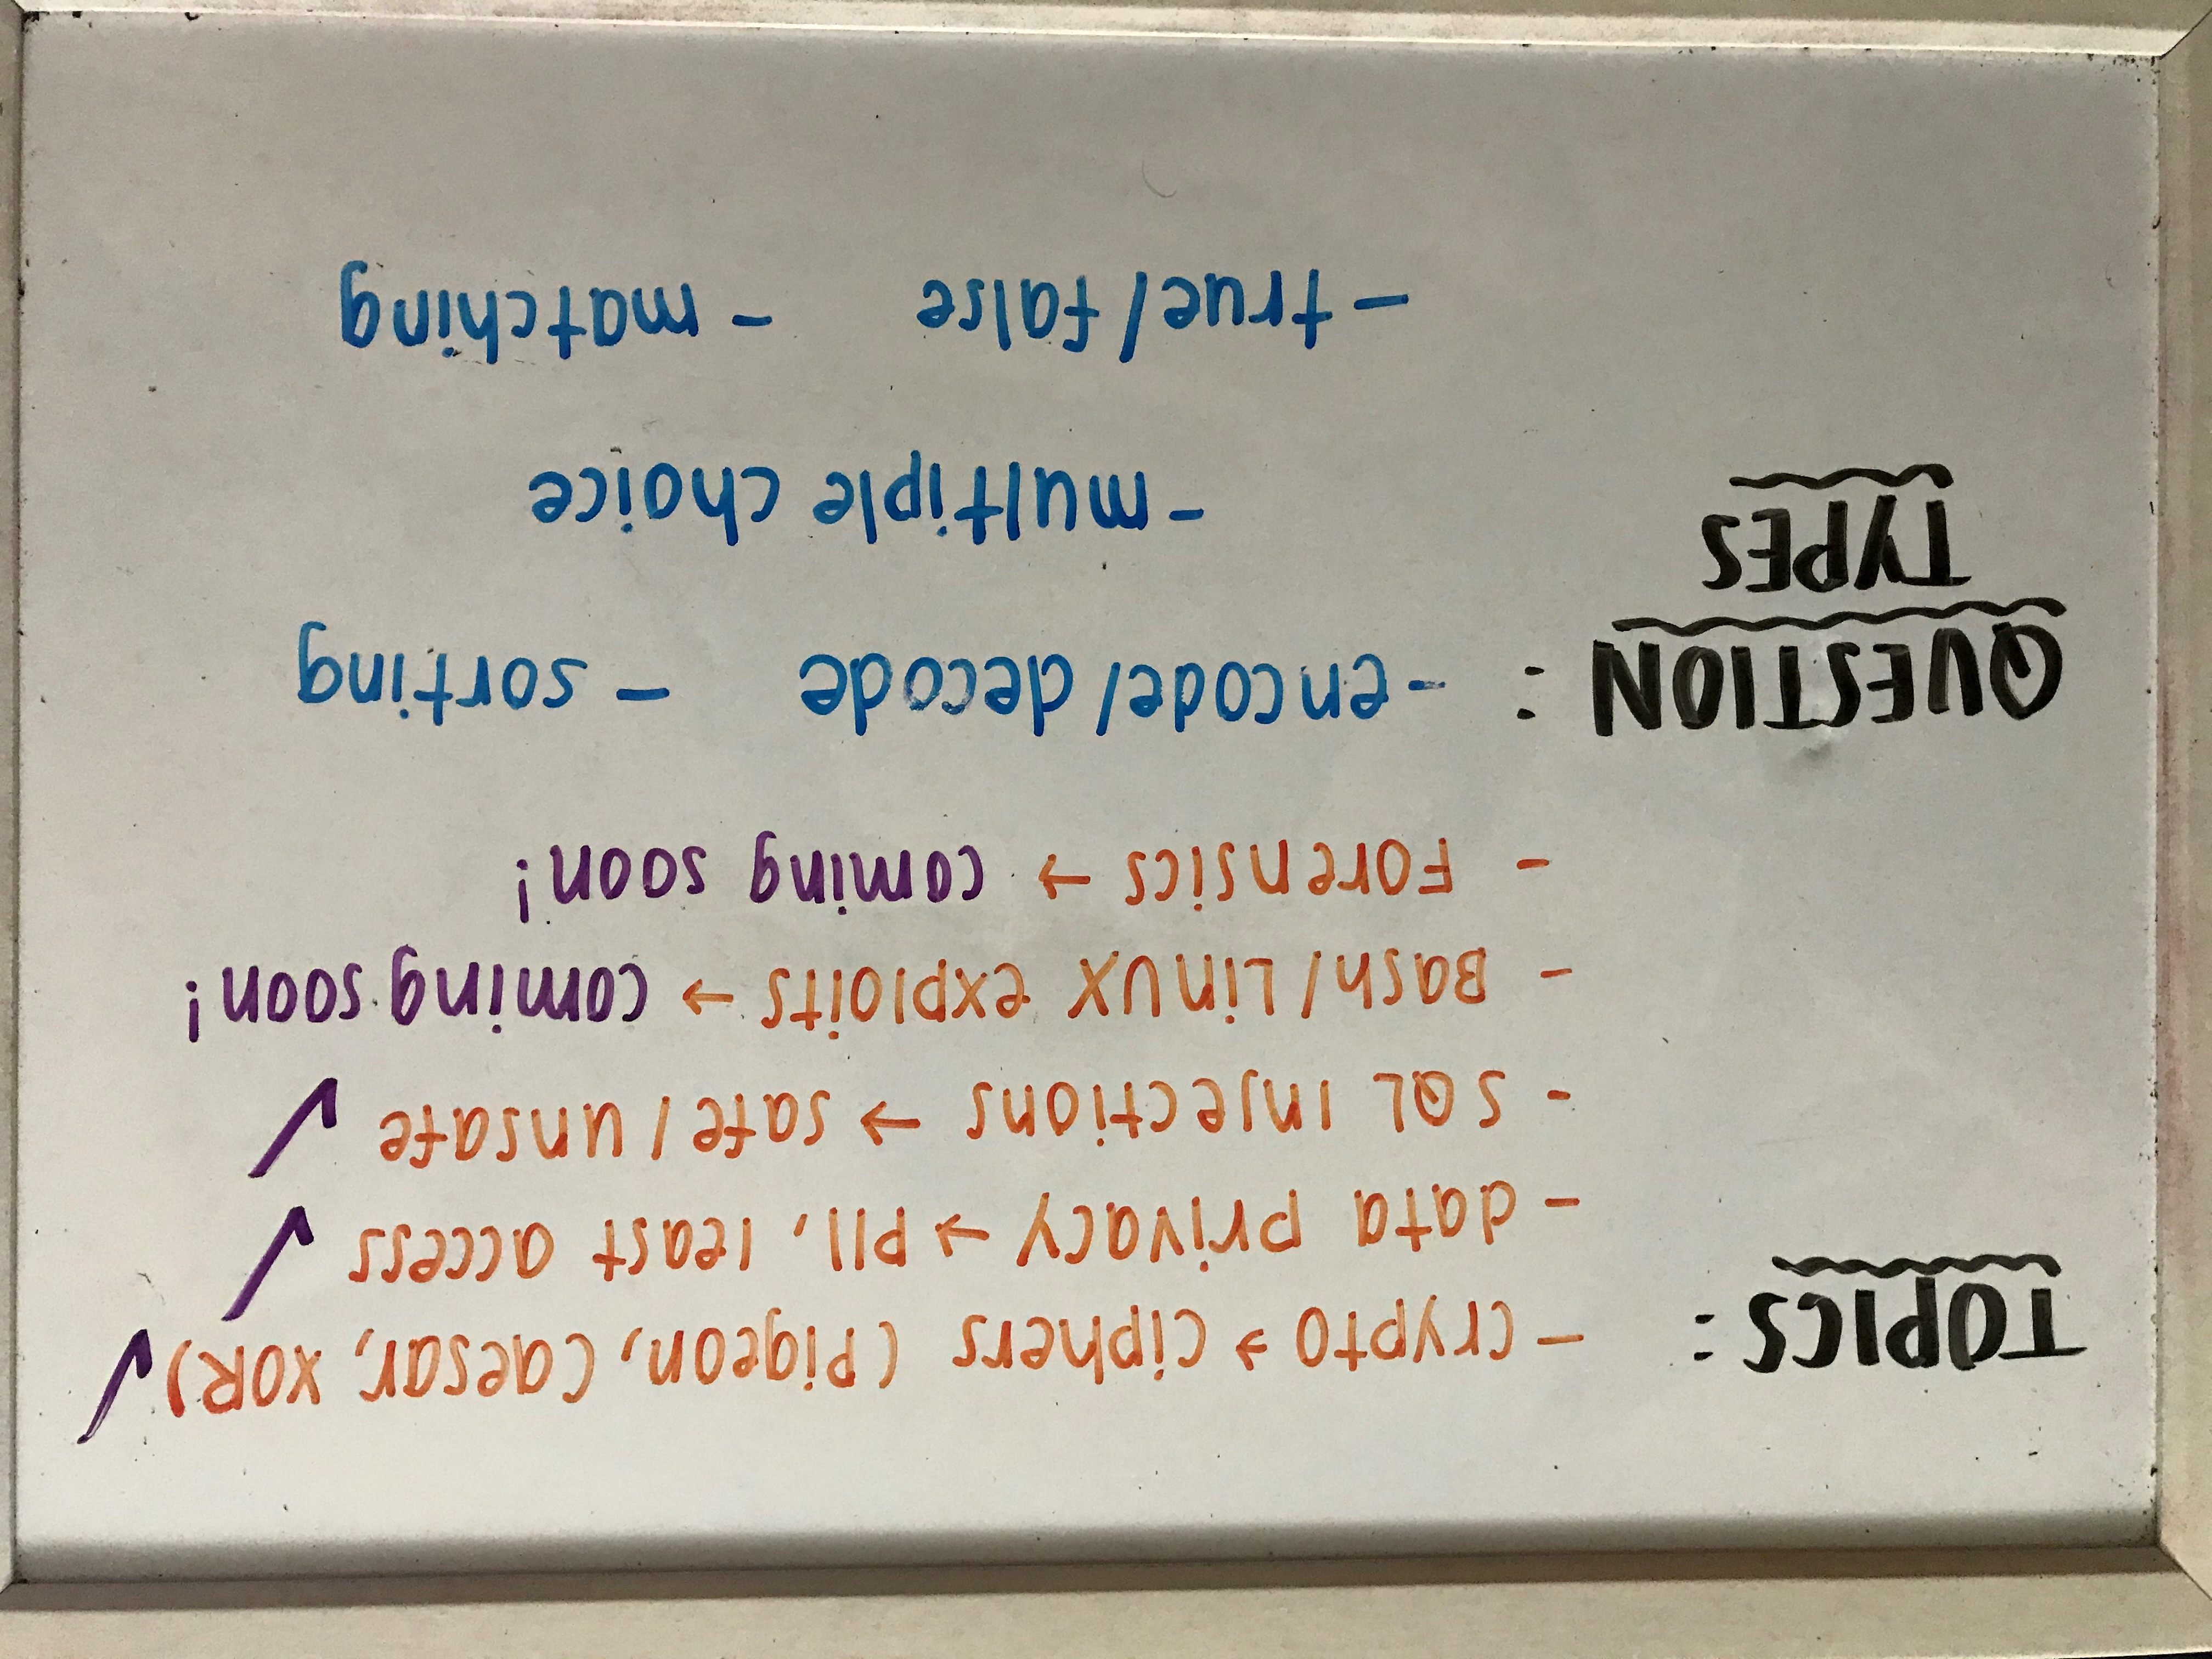 TOPICS: - crypto → ciphers (Pigeon, Caesar, XOR) ✓
- data privacy → PII, least access ✓
- SQL injections → safe/unsafe ✓
- Bash/Linux exploits → coming soon!
- Forensics → coming soon!
QUESTION : - encode/decode - sorting
TYPES
- multiple choice
- true/false - matching